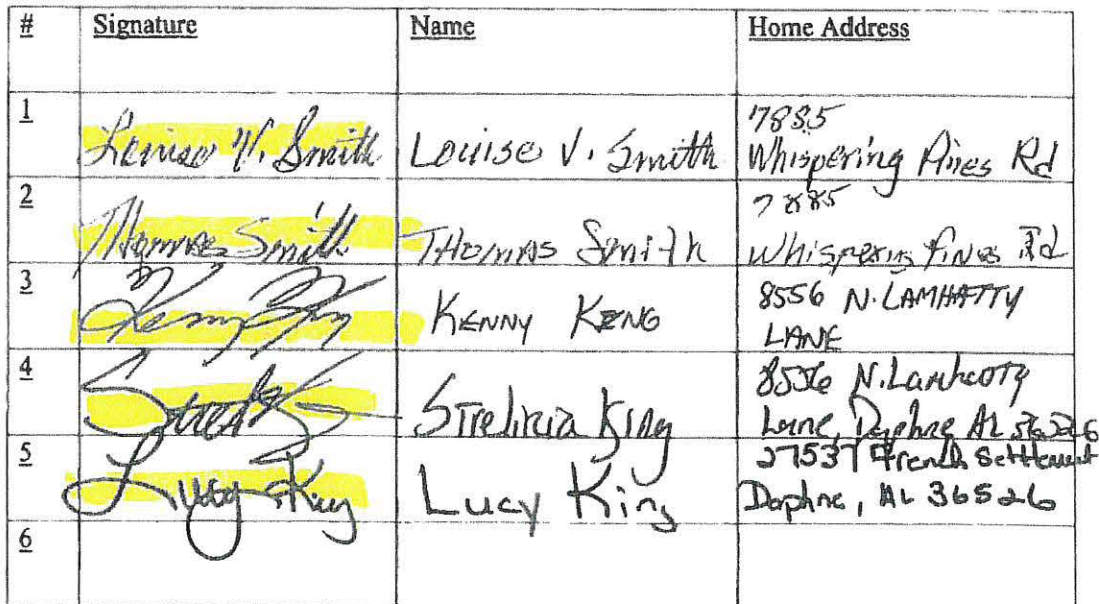 # Signature Name Home Address
1 Louise V. Smith Louise V. Smith 7885
Whispering Pines Rd
2 Thomas Smith THOMAS Smith 7885
Whispering Pines Rd
3 KENNY KING 8556 N. LAMHATTY
LANE
4 Strelitzia King 8556 N. Lamhatty
Lane, Daphne AL 36526
5 Lucy King Lucy King 27537 French Settlement
Daphne, AL 36526
6